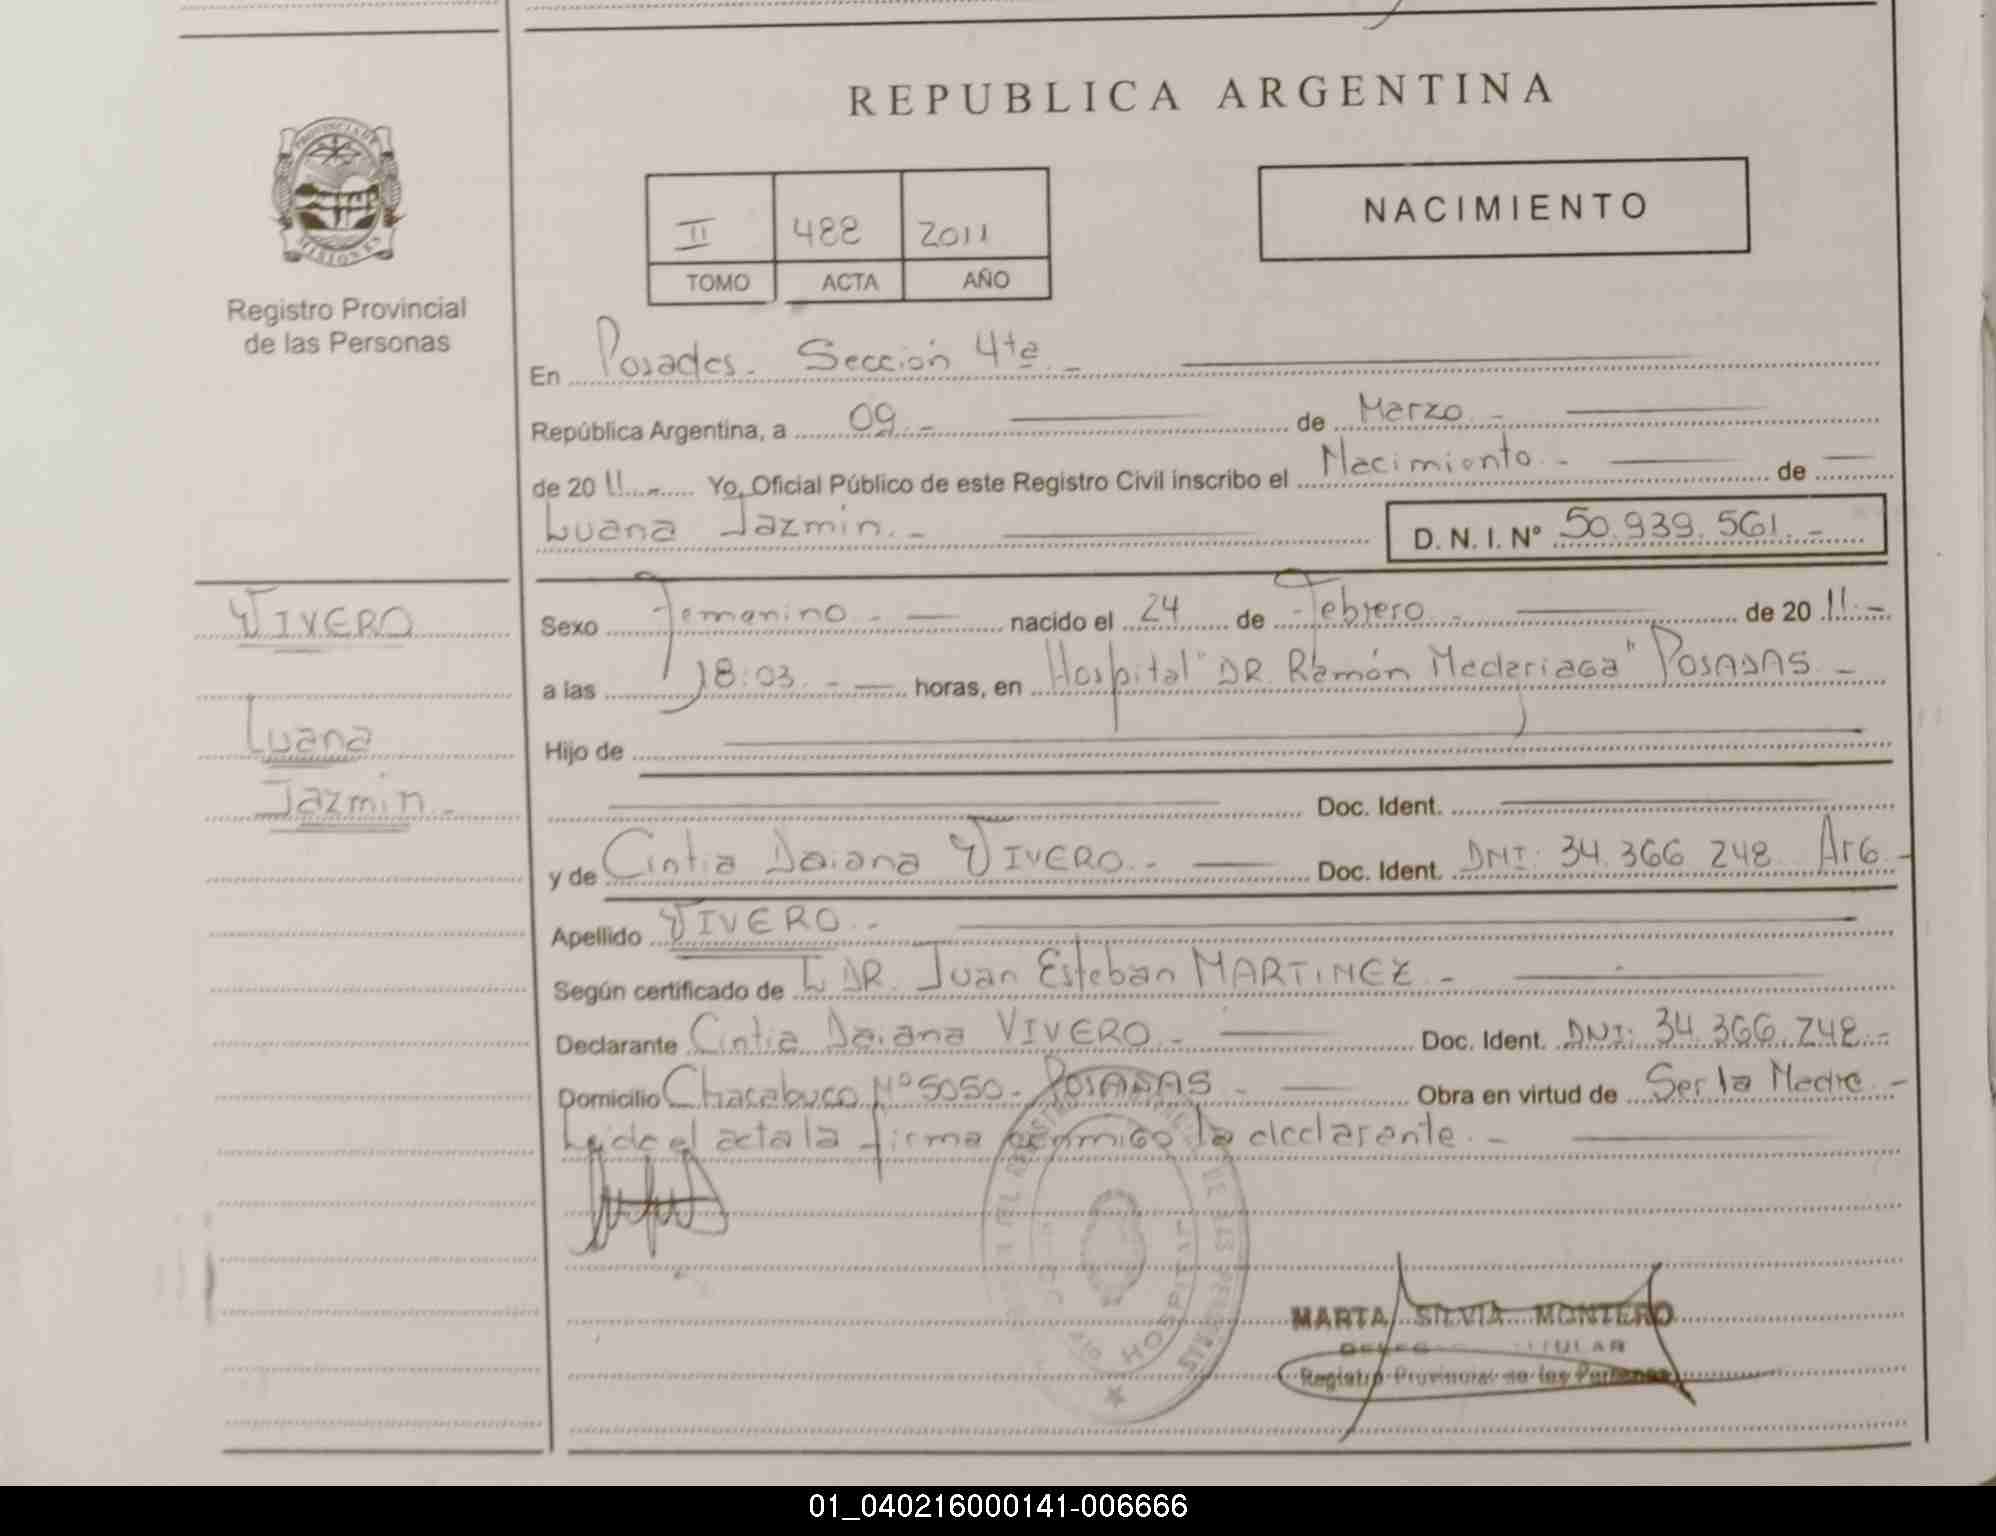 REPUBLICA ARGENTINA
PROVINCIA DE
MISIONES
Registro Provincial
de las Personas
NACIMIENTO
II 488 2011
TOMO ACTA AÑO
En Posadas. Sección 4ta. -
República Argentina, a 09. - de Marzo. -
de 20 11. - Yo, Oficial Público de este Registro Civil inscribo el Nacimiento. - de
Luana Jazmin. - D. N. I. Nº 50.939.561. -
VIVERO
Luana
Jazmin. -
Sexo Femenino. - nacido el 24 de Febrero. - de 20 11. -
a las 18:03. - horas, en Hospital "DR. Ramón Madariaga" POSADAS. -
Hijo de
Doc. Ident.
y de Cintia Daiana VIVERO. - Doc. Ident. DNI: 34.366.248 Arg. -
Apellido VIVERO. -
Según certificado de DR. Juan Esteban MARTINEZ. -
Declarante Cintia Daiana VIVERO. - Doc. Ident. DNI: 34.366.248. -
Domicilio Chacabuco Nº 5050. POSADAS - Obra en virtud de Ser la Madre. -
Leída el acta la firma conmigo la declarante. -
DE LAS PERSONAS
HOSPITAL
MARTA SILVIA MONTERO
TITULAR
Registro Provincial de las Personas
01_040216000141-006666